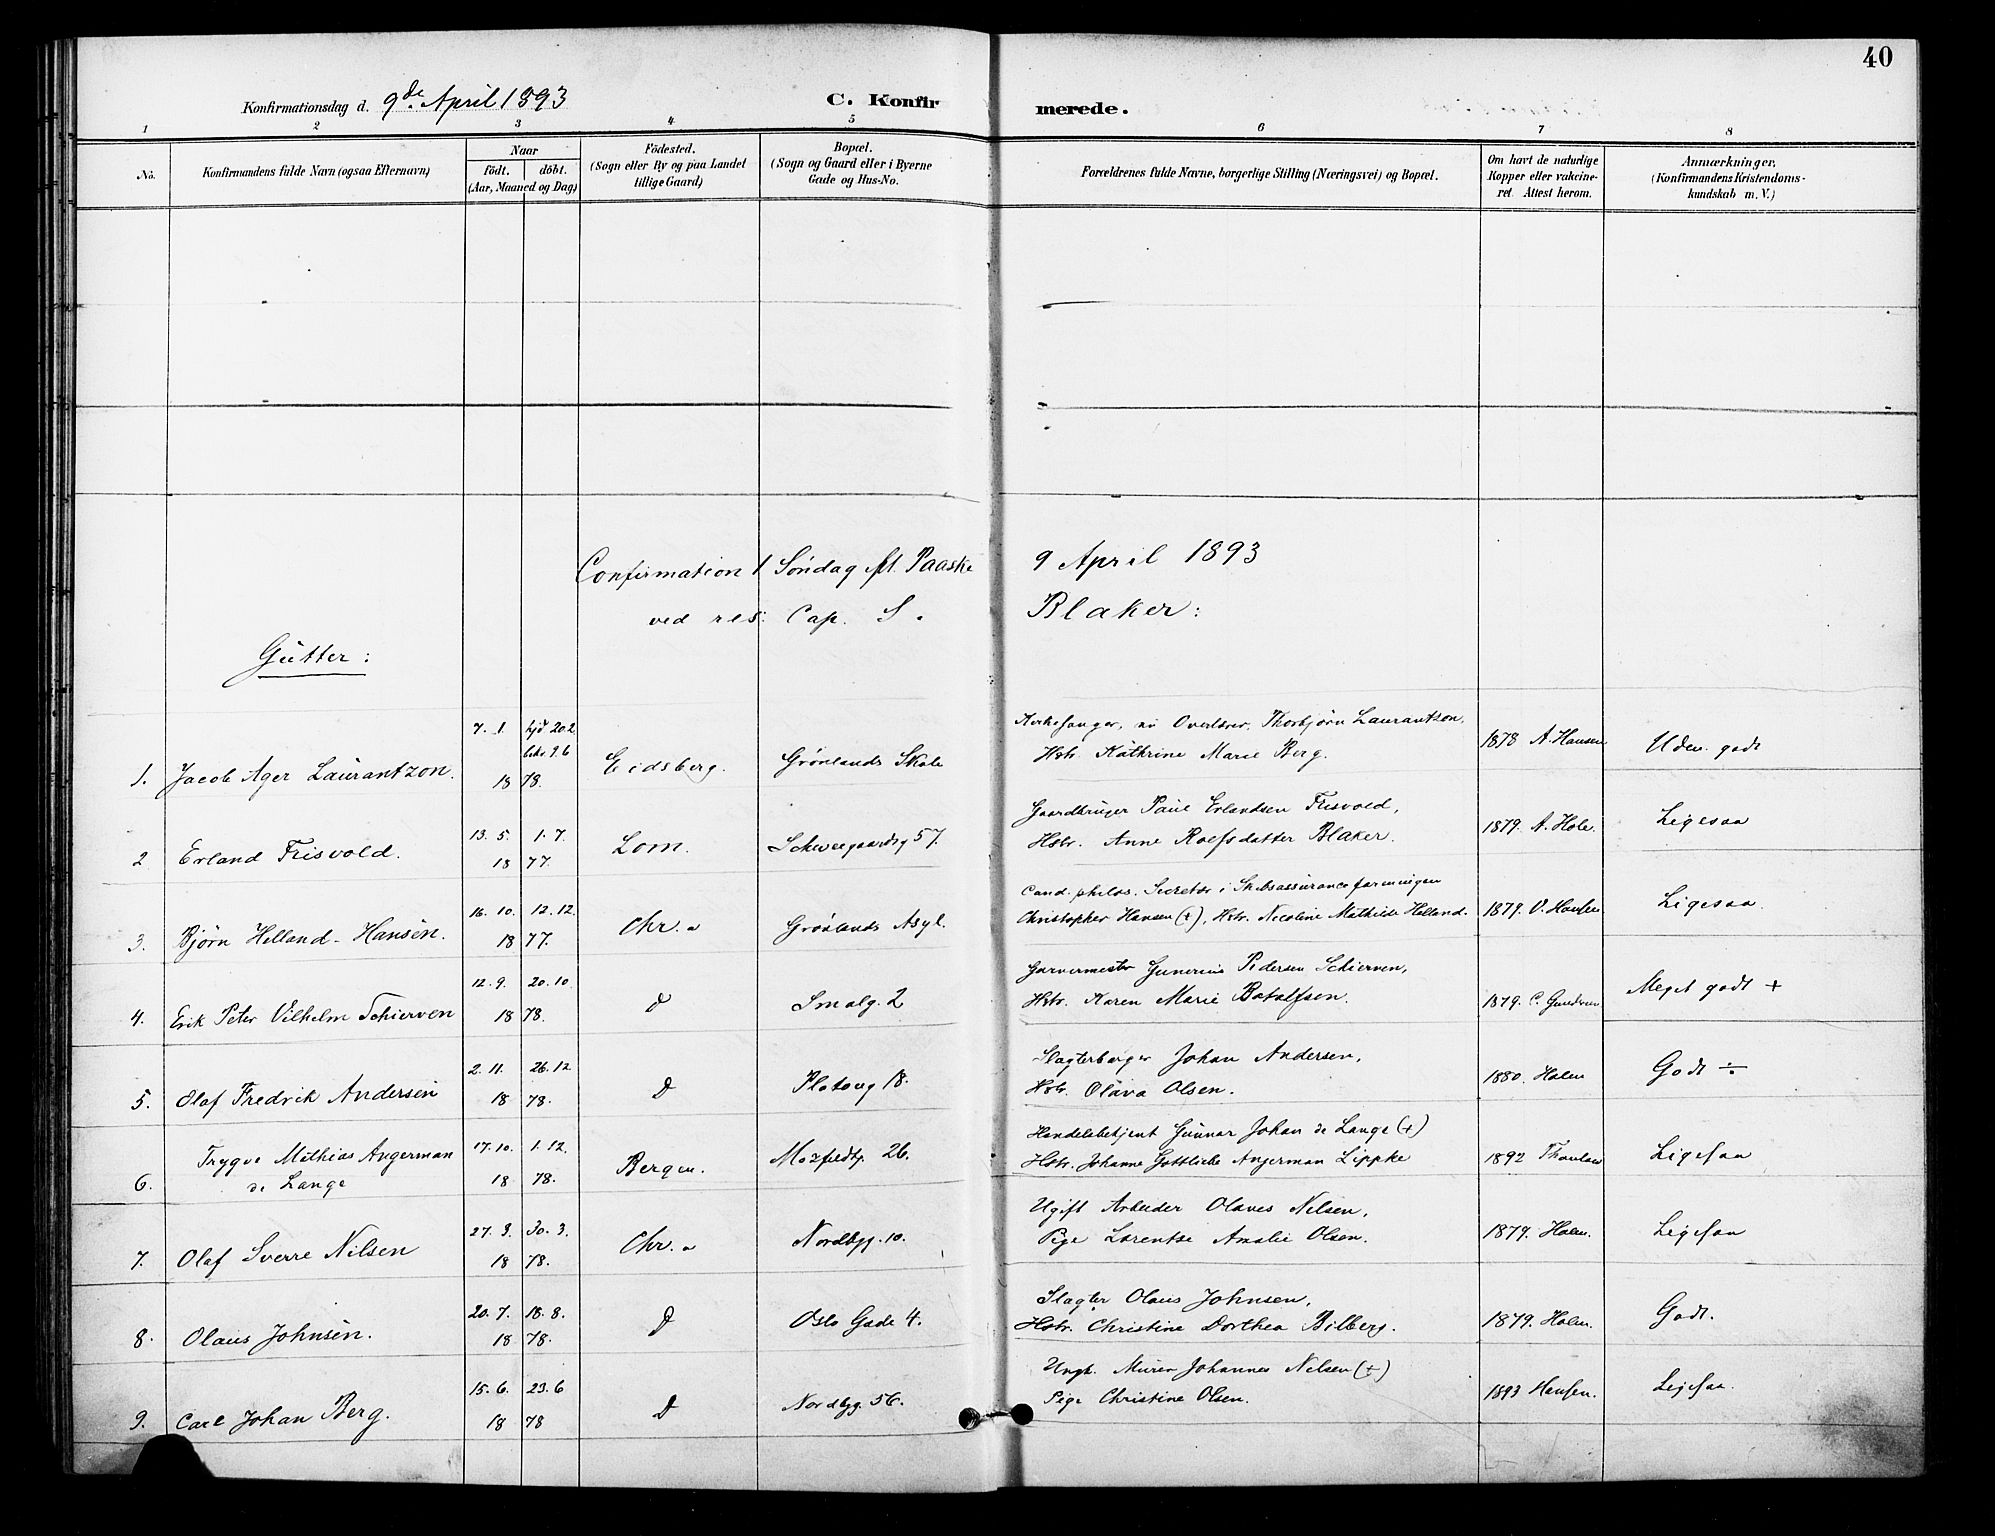 40
Konfirmationsdag d. 9de April 1893 C. Konfirmerede.
1 2 3 4 5 6 7 8
No. Konfirmandens fulde Navn (ogsaa Efternavn) Naar födt. döbt. (Aar, Maaned og Dag) Födested. (Sogn eller By og paa Landet tillige Gaard) Bopæl. (Sogn og Gaard eller i Byerne Gade og Hus-No. Forældrenes fulde Navne, borgerlige Stilling (Næringsvei) og Bopæl. Om havt de naturlige Kopper eller vakcineret. Attest herom. Anmærkninger. (Konfirmandens Kristendomskundskab m. V.)
Confirmation 1 Søndag ft. Paaske 9 April 1893
ved res: Cap. S. Blaker:
Gutter:
7. 1. hjd 20.2 Kirkesanger, nu Overlærer, Thorbjørn Laurantzon,
1. Jacob Ager Laurantzon. 18 78. Eidsberg. Grønlands Skole Hstr. Kathrine Marie Berg. 1878 A. Hansen Uden. godt
13. 5. 1. 7. Gaardbruger Paul Erlandsen Frisvold,
2 Erland Frisvold. 18 77. Lom. Schweegaardsg 57. Hstr. Anne Roefsdatter Blaker. 1879. A. Hole. Ligesaa
16. 10. 12. 12. Cand. philos. Secretær i Skibsassuranceforeningen
3. Bjørn Helland-Hansen. 18 77. Chr.a Grønlands Asyl. Christopher Hansen (+), Hstr. Nicoline Mathilde Helland. 1879. V. Hansen Ligesaa.
12. 9. 20. 10. Garvermester Gunerius Pedersen Schierven,
4. Erik Peter Vilhelm Schierven 18 78. D Smalg. 2 Hstr. Karen Marie Botolfsen. 1879. C. Meget godt +
2. 11. 26. 12 Slagterborger Johan Andersen,
5. Olaf Fredrik Andersen 18 78. D Platoug 18. Hstr. Olava Olsen. 1880. Holm Godt ÷
17. 10. 1. 12. Handelsbetjent Gunnar Johan de Lange (+)
6. Trygve Mathias Angerman de Lange 18 78. Bergen. Mozfeldtg. 26. Hstr. Johanne Gottliebe Angerman Lippke 1892 Thaulow Ligesaa
27. 3. 30. 3. Ugift Arbeider Olaves Nilsen,
7. Olaf Sverre Nilsen 18 78. Chr.a Nordbyg. 10. Pige Lorentse Amalie Olsen. 1879. Holm. Ligesaa
20. 7. 18. 8. Slagter Olaus Johnsen,
8. Olaus Johnsen. 18 78. D Oslo Gade 4. Hstr. Christine Dorthea Bilberg. 1879. Holm. Godt.
15. 6. 23. 6 Ungk. Murer Johannes Nilsen (+)
9. Carl Johan Berg. 18 78 D Nordbyg. 56. Pige Christine Olsen. 1893 Hansen. Ligesaa.